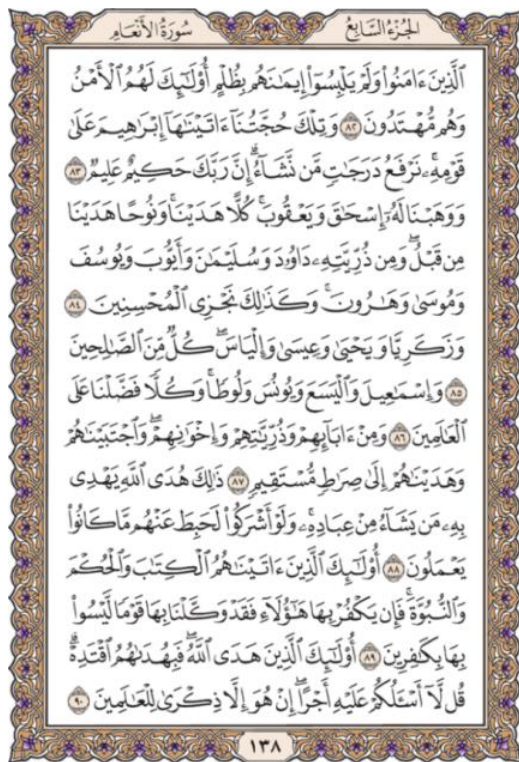 الجُزْءُ السَّابِعُ
سُورَةُ الأَنْعَامِ
ٱلَّذِينَ ءَامَنُوا۟ وَلَمْ يَلْبِسُوٓا۟ إِيمَٰنَهُم بِظُلْمٍ أُو۟لَٰٓئِكَ لَهُمُ ٱلْأَمْنُ
وَهُم مُّهْتَدُونَ ۝٨٢ وَتِلْكَ حُجَّتُنَآ ءَاتَيْنَٰهَآ إِبْرَٰهِيمَ عَلَىٰ
قَوْمِهِۦ ۚ نَرْفَعُ دَرَجَٰتٍ مَّن نَّشَآءُ ۗ إِنَّ رَبَّكَ حَكِيمٌ عَلِيمٌ ۝٨٣
وَوَهَبْنَا لَهُۥٓ إِسْحَٰقَ وَيَعْقُوبَ ۚ كُلًّا هَدَيْنَا ۚ وَنُوحًا هَدَيْنَا
مِن قَبْلُ ۖ وَمِن ذُرِّيَّتِهِۦ دَاوُۥدَ وَسُلَيْمَٰنَ وَأَيُّوبَ وَيُوسُفَ
وَمُوسَىٰ وَهَٰرُونَ ۚ وَكَذَٰلِكَ نَجْزِى ٱلْمُحْسِنِينَ ۝٨٤
وَزَكَرِيَّا وَيَحْيَىٰ وَعِيسَىٰ وَإِلْيَاسَ ۖ كُلٌّ مِّنَ ٱلصَّٰلِحِينَ
۝٨٥ وَإِسْمَٰعِيلَ وَٱلْيَسَعَ وَيُونُسَ وَلُوطًا ۚ وَكُلًّا فَضَّلْنَا عَلَى
ٱلْعَٰلَمِينَ ۝٨٦ وَمِنْ ءَابَآئِهِمْ وَذُرِّيَّٰتِهِمْ وَإِخْوَٰنِهِمْ ۖ وَٱجْتَبَيْنَٰهُمْ
وَهَدَيْنَٰهُمْ إِلَىٰ صِرَٰطٍ مُّسْتَقِيمٍ ۝٨٧ ذَٰلِكَ هُدَى ٱللَّهِ يَهْدِى
بِهِۦ مَن يَشَآءُ مِنْ عِبَادِهِۦ ۚ وَلَوْ أَشْرَكُوا۟ لَحَبِطَ عَنْهُم مَّا كَانُوا۟
يَعْمَلُونَ ۝٨٨ أُو۟لَٰٓئِكَ ٱلَّذِينَ ءَاتَيْنَٰهُمُ ٱلْكِتَٰبَ وَٱلْحُكْمَ
وَٱلنُّبُوَّةَ ۚ فَإِن يَكْفُرْ بِهَا هَٰٓؤُلَآءِ فَقَدْ وَكَّلْنَا بِهَا قَوْمًا لَّيْسُوا۟
بِهَا بِكَٰفِرِينَ ۝٨٩ أُو۟لَٰٓئِكَ ٱلَّذِينَ هَدَى ٱللَّهُ ۖ فَبِهُدَىٰهُمُ ٱقْتَدِهْ ۗ
قُل لَّآ أَسْـَٔلُكُمْ عَلَيْهِ أَجْرًا ۖ إِنْ هُوَ إِلَّا ذِكْرَىٰ لِلْعَٰلَمِينَ ۝٩٠
١٣٨